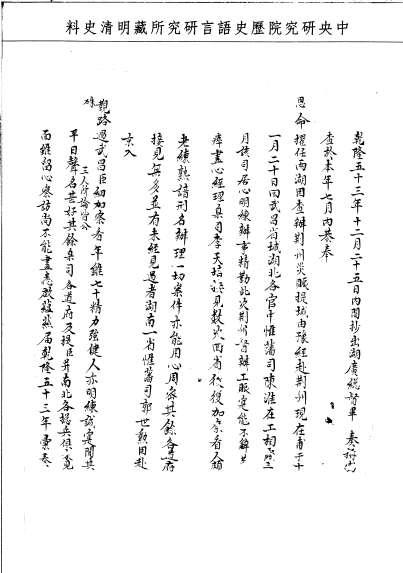 中央研究院歷史語言研究所藏明清史料
乾隆五十三年十二月二十五日內閣抄出湖廣總督畢 奏
查於本年七月內恭奉
恩命擢任兩湖因查辦荊州災賑提城由豫經赴荊州現在甫于十
一月二十日回武昌省城湖北各官中惟藩司陳淮在工相
月該司居心明練辦事精勤此次荊州督辦工賑定能不辭
瘁盡心經理臬司李天培 見數次西省 後加 看人頗
老練熟諳刑名辦理一切案件亦能用心周密其餘各道府
接見無多並有未經見過者湖南一省惟藩司郭世勳因赴
京入
覲路過武昌臣初加察看年雖七十精力強健人亦明練誠實聞其
三人
平日聲名甚好其餘臬司各道府及提臣并南北各總兵俱未見
面雖留心察訪尚不能盡悉 茲屆乾隆五十三年彙奏